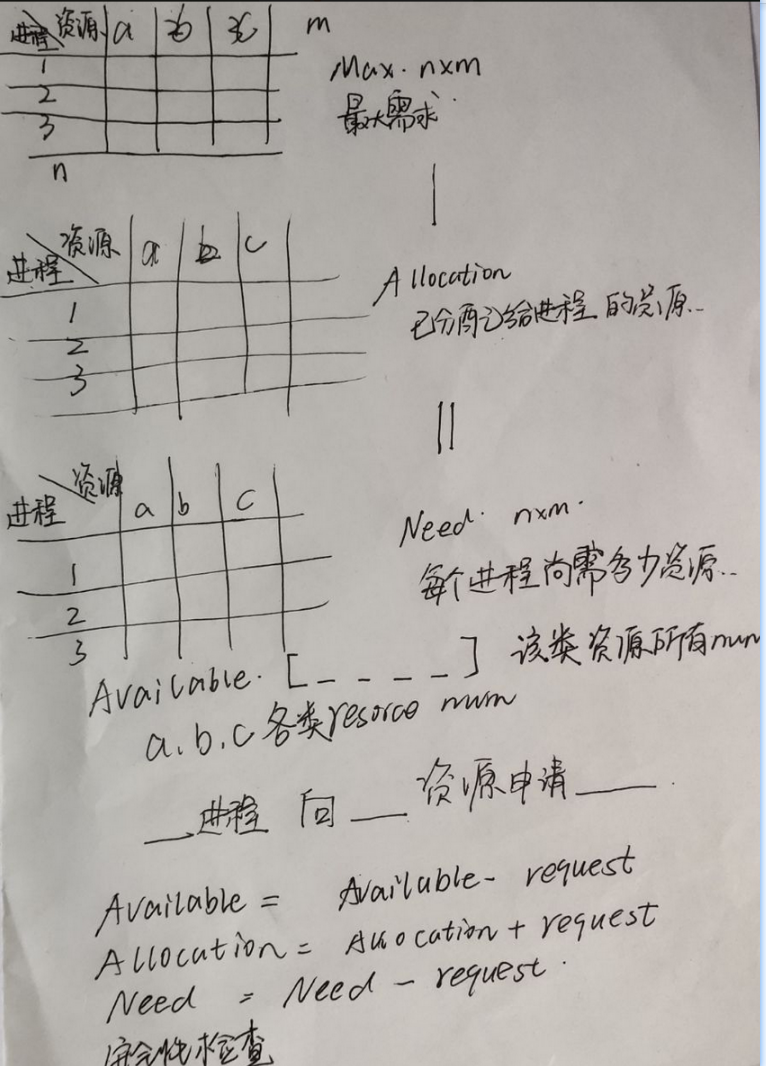 进程 资源 a b c m
1
2
3
n
Max. nxm
最大需求.
资源 a b c
进程
1
2
3
Allocation
已分配给进程的资源..
资源
进程 a b c
1
2
3
Need. nxm.
每个进程尚需多少资源..
Available. [_ _ _ _] 该类资源所有num
a.b.c各类resorce num
__进程 向 __ 资源申请 __.
Available = Available - request
Allocation = Allocation + request
Need = Need - request.
安全性检查